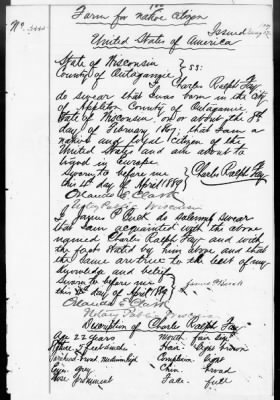 No.
Form for native citizen
Issued
United States of America
State of Wisconsin
County of Outagamie } SS:
I Charles Ralph Fay
do swear that I was born in the City
of Appleton County of Outagamie
State of Wisconsin, on or about the 8th
day of February 1867; that I am a
native and loyal citizen of the
United States and am about to
travel in Europe
Sworn to before me } Charles Ralph Fay
this 1st day of April 1889
Orlando E. Clark
Notary Public
I James P. Buck do solemnly swear
that I am acquainted with the above
named Charles Ralph Fay and with
the fact stated by him above and that
the same are true to the best of my
knowledge and belief
Sworn to before me } James P. Buck
this 1st day of April 1889
Orlando E. Clark
Notary Public
Description of Charles Ralph Fay
Age 22 years Mouth fair size
Stature 5 feet Hair light brown
Forehead broad medium high Complexion light
Eyes grey Chin broad
Nose prominent Face full